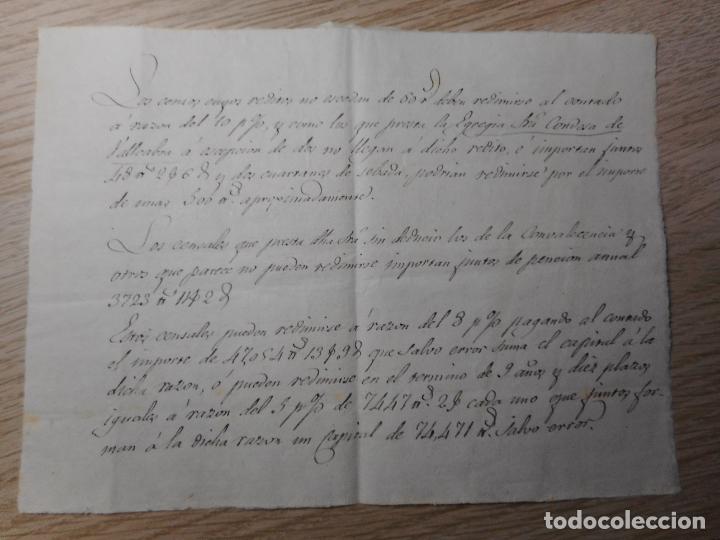 Los censos cuyos reditos no esceden de 60 r.s deben redimirse al contado
á razon del 10 p%, y como los que presta la Egregia Sra. Condesa de
Vallcabra á escepcion de dos no llegan á dicho redito, é importan juntos
48 tt 2 s 6 d y dos cuarteras de sebada, podrian redimirse por el importe
de unas 500 tt aproximadamente.
Los censales que presta dha Sra. sin deducir los de la Convalecencia y
otros que parece no pueden redimirse importan juntos de pencion anual
3723 tt 11 s 2 d
Estos censales pueden redimirse á razon del 8 p% pagando al contado
el importe de 47,054 tt 13 s 9 d que salvo error suma el capital á la
dicha razon, ó pueden redimirse en el termino de 9 años y diez plazos
iguales á razon del 5 p% de 7447 tt 2 s cada uno que juntos for-
man á la dicha razon un Capital de 74,471 tt salvo error.
todocoleccion.net